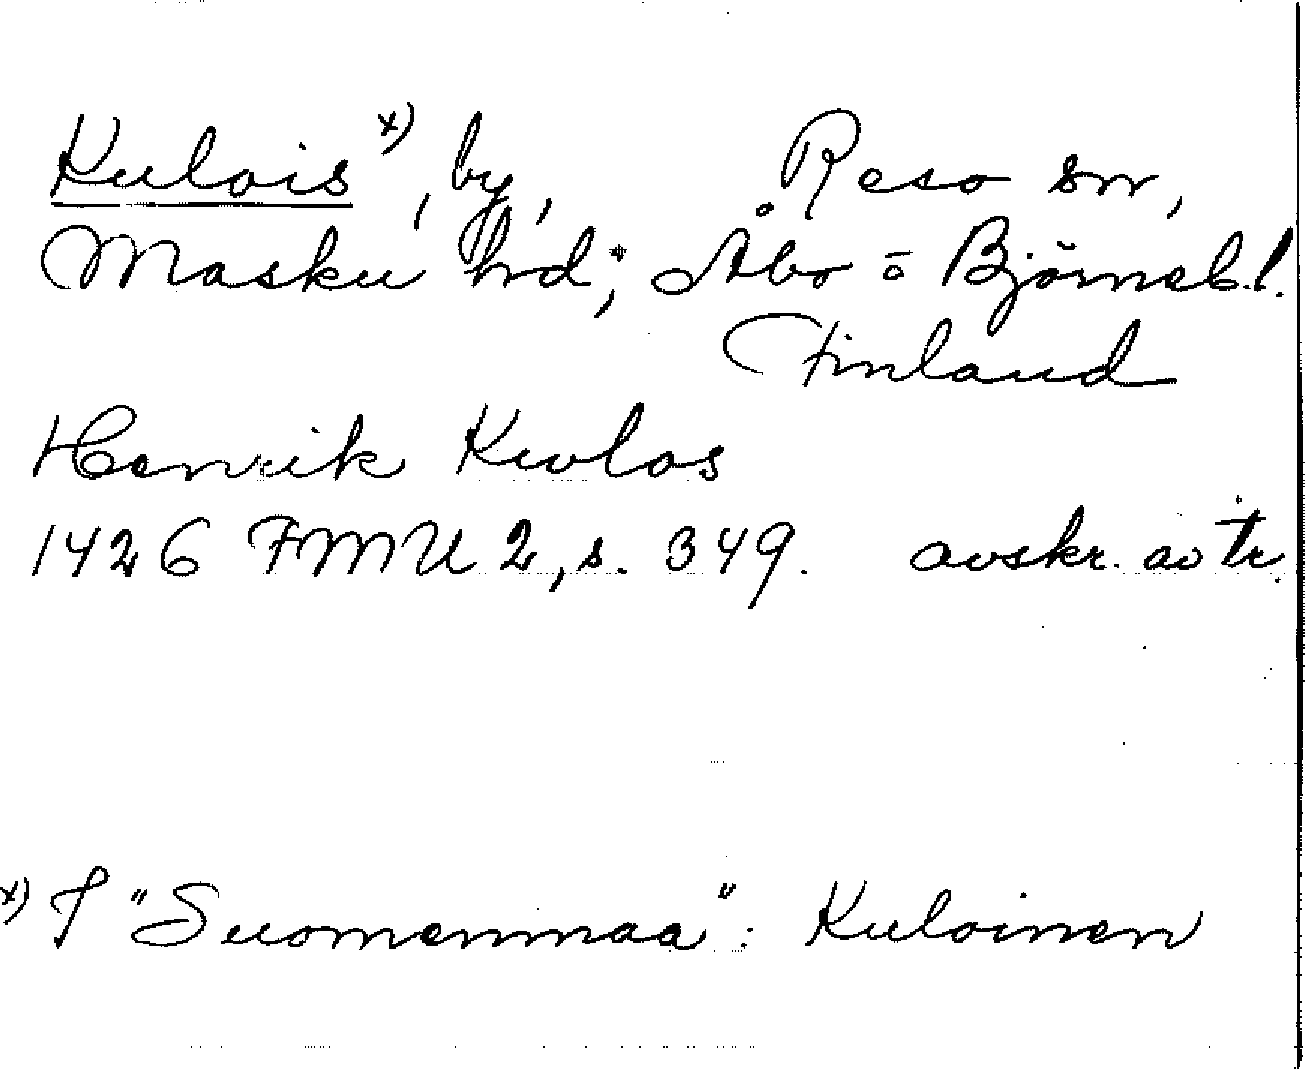 Kulois x), by, Reso sn,
Masku hrd; Åbo = Björneb.l.
Finland
Henrik Kwlos
1426 FMU 2, s. 349. avskr. av tr.
x) I "Suomenmaa": Kuloinen